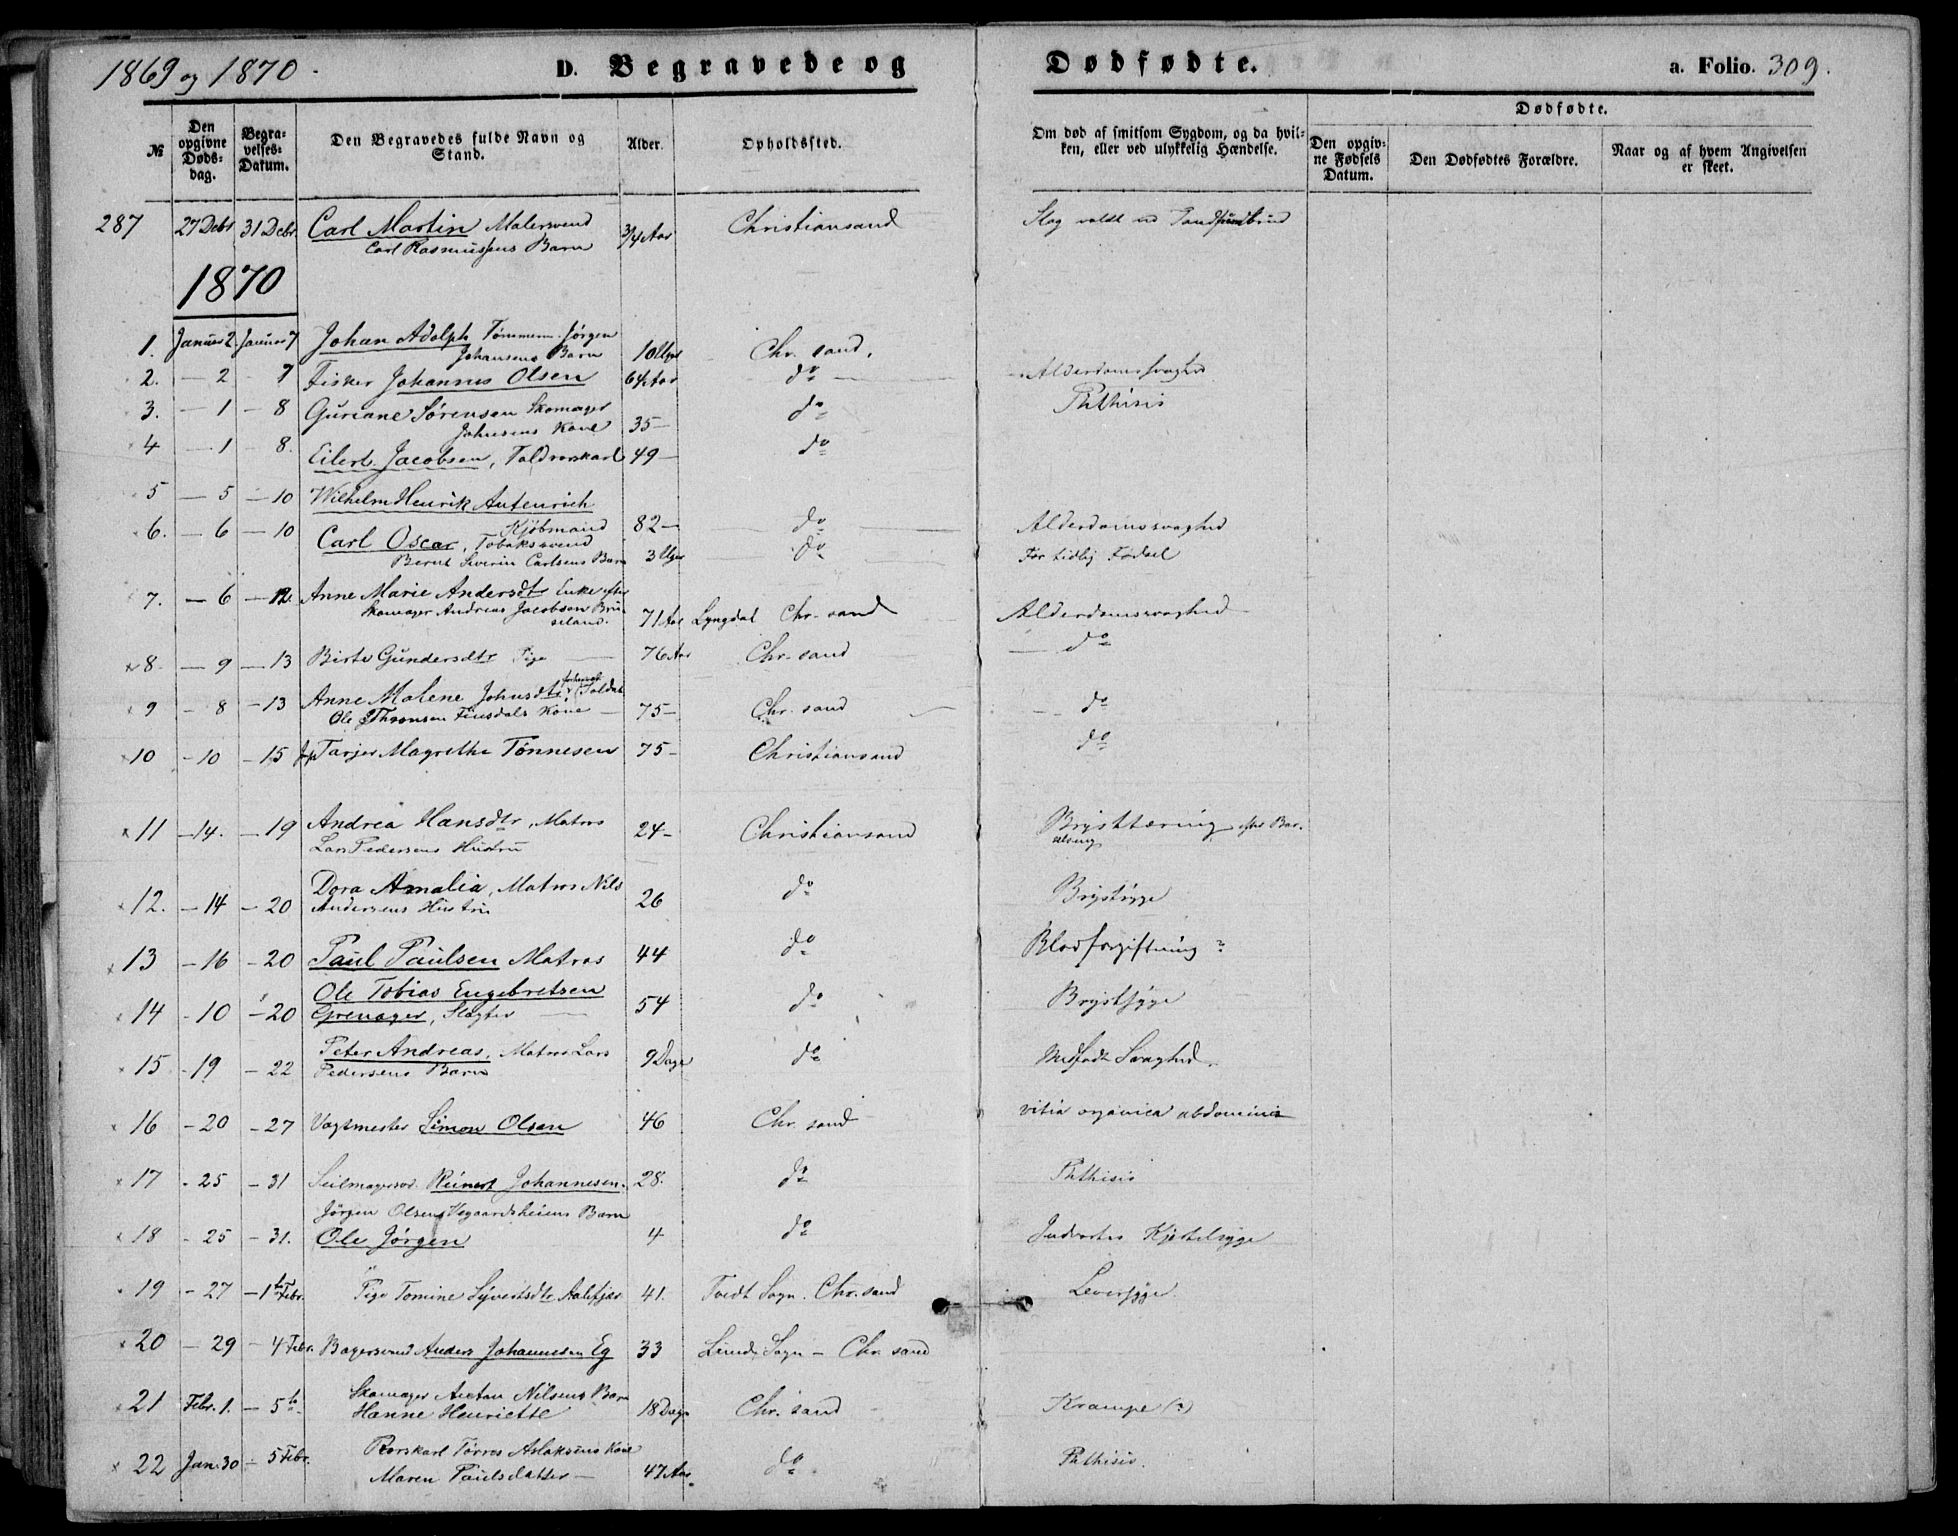 1869 og 1870.
D. Begravede og Dødfødte.
a. Folio. 309.
№
Den opgivne Døds-dag.
Begra-velses-Datum.
Den Begravedes fulde Navn og Stand.
Alder.
Opholdssted.
Om død af smitsom Sygdom, og da hvil-ken, eller ved ulykkelig Hændelse.
Dødfødte.
Den opgiv-ne Fødsels Datum.
Den Dødfødtes Forældre.
Naar og af hvem Angivelsen er skeet.
287 27 Debr 31 Debr. Carl Martin Malersvend 3/4 Aar Christiansand Slag
Carl Rasmussens Barn
1870
1. Januar 2 Januar 7 Johan Adolph Tømmerm. Jørgen
Johansens Barn 10 Uger Chr. sand.
2. — 2 — 7 Fisker Johannes Olsen 64 Aar do Alderdomssvaghed
3. — 1 — 8 Guriane Sørensen Skomager do Phthisis
Johnsens Kone 35 —
4 — 1 — 8. Eilert Jacobsen, Toldrorskarl 49 — do
5 — 5 — 10 Wilhelm Henrik Autenrich
Kjøbmand 82 — do Alderdomssvaghed
6. — 6 — 10 Carl Oscar, Tobaksvend
Bernt Severin Carlsens Barn 3 Uger do For tidlig Fødsel
7. — 6 — 12. Anne Marie Andersdtr Enke efter
Skomager Andreas Jacobsen Bru-
seland. 71 Aar Lyngdal Chr. sand Alderdomssvaghed
8 — 9 — 13 Birte Gundersdtr Pige 76 Aar Chr. sand do
9 — 8 — 13 Anne Malene Johnsdtr, Soldat
Ole Thronsen Finsdals Kone — 75 — Chr. sand do
10 — 10 — 15 Tarjer Magrethe Tønnesen 75 — Christiansand do
11 — 14. — 19 Andrea Hansdtr, Matros 24 — Christiansand Brysttæring efter Bar-
Lars Pedersens Hustru
12. — 14 — 20 Dora Amalia, Matros Nils 26 do Brystsyge
Andersens Hustru
13 — 16 — 20 Paul Paulsen Matros 44 do Blodforgiftning ?
14 — 10 — 20 Ole Tobias Engebretsen 54 do Brystsyge
Grenager, Slagter
15 — 19 — 22 Peter Andreas, Matros Lars 9 Dage do Medfødt Svaghed.
Pedersens Barn
16 — 20 — 27 Vagtmester Simon Olsen 46 Chr. sand vitia organica abdominis
17 — 25 — 31 Seilmagersv. Reinert Johannesen. 28. do Phthisis
Jørgen Olsens Vegaardsheiens Barn
18 — 25 — 31. Ole Jørgen 4 do Indvortes Kjertelsyge
19 — 27 — 1ste Febr. Pige Tomine Syvertsdtr Aalefjær 41. Tveit Sogn. Chr. sand Leversyge.
20 — 29 — 4 Febr. Bagersvend Anders Johannesen Eg 33 Lunds Sogn — Chr. sand
21 Febr. 1. — 5te Skomager Anton Nilsens Barn
Hanne Henriette 18 Dage Chr. sand Krampe (?)
22 Jan. 30 — 5 Febr. Rorskarl Tørres Aslaksens Kone
Maren Paulsdatter — 47 Aar. do Phthisis.